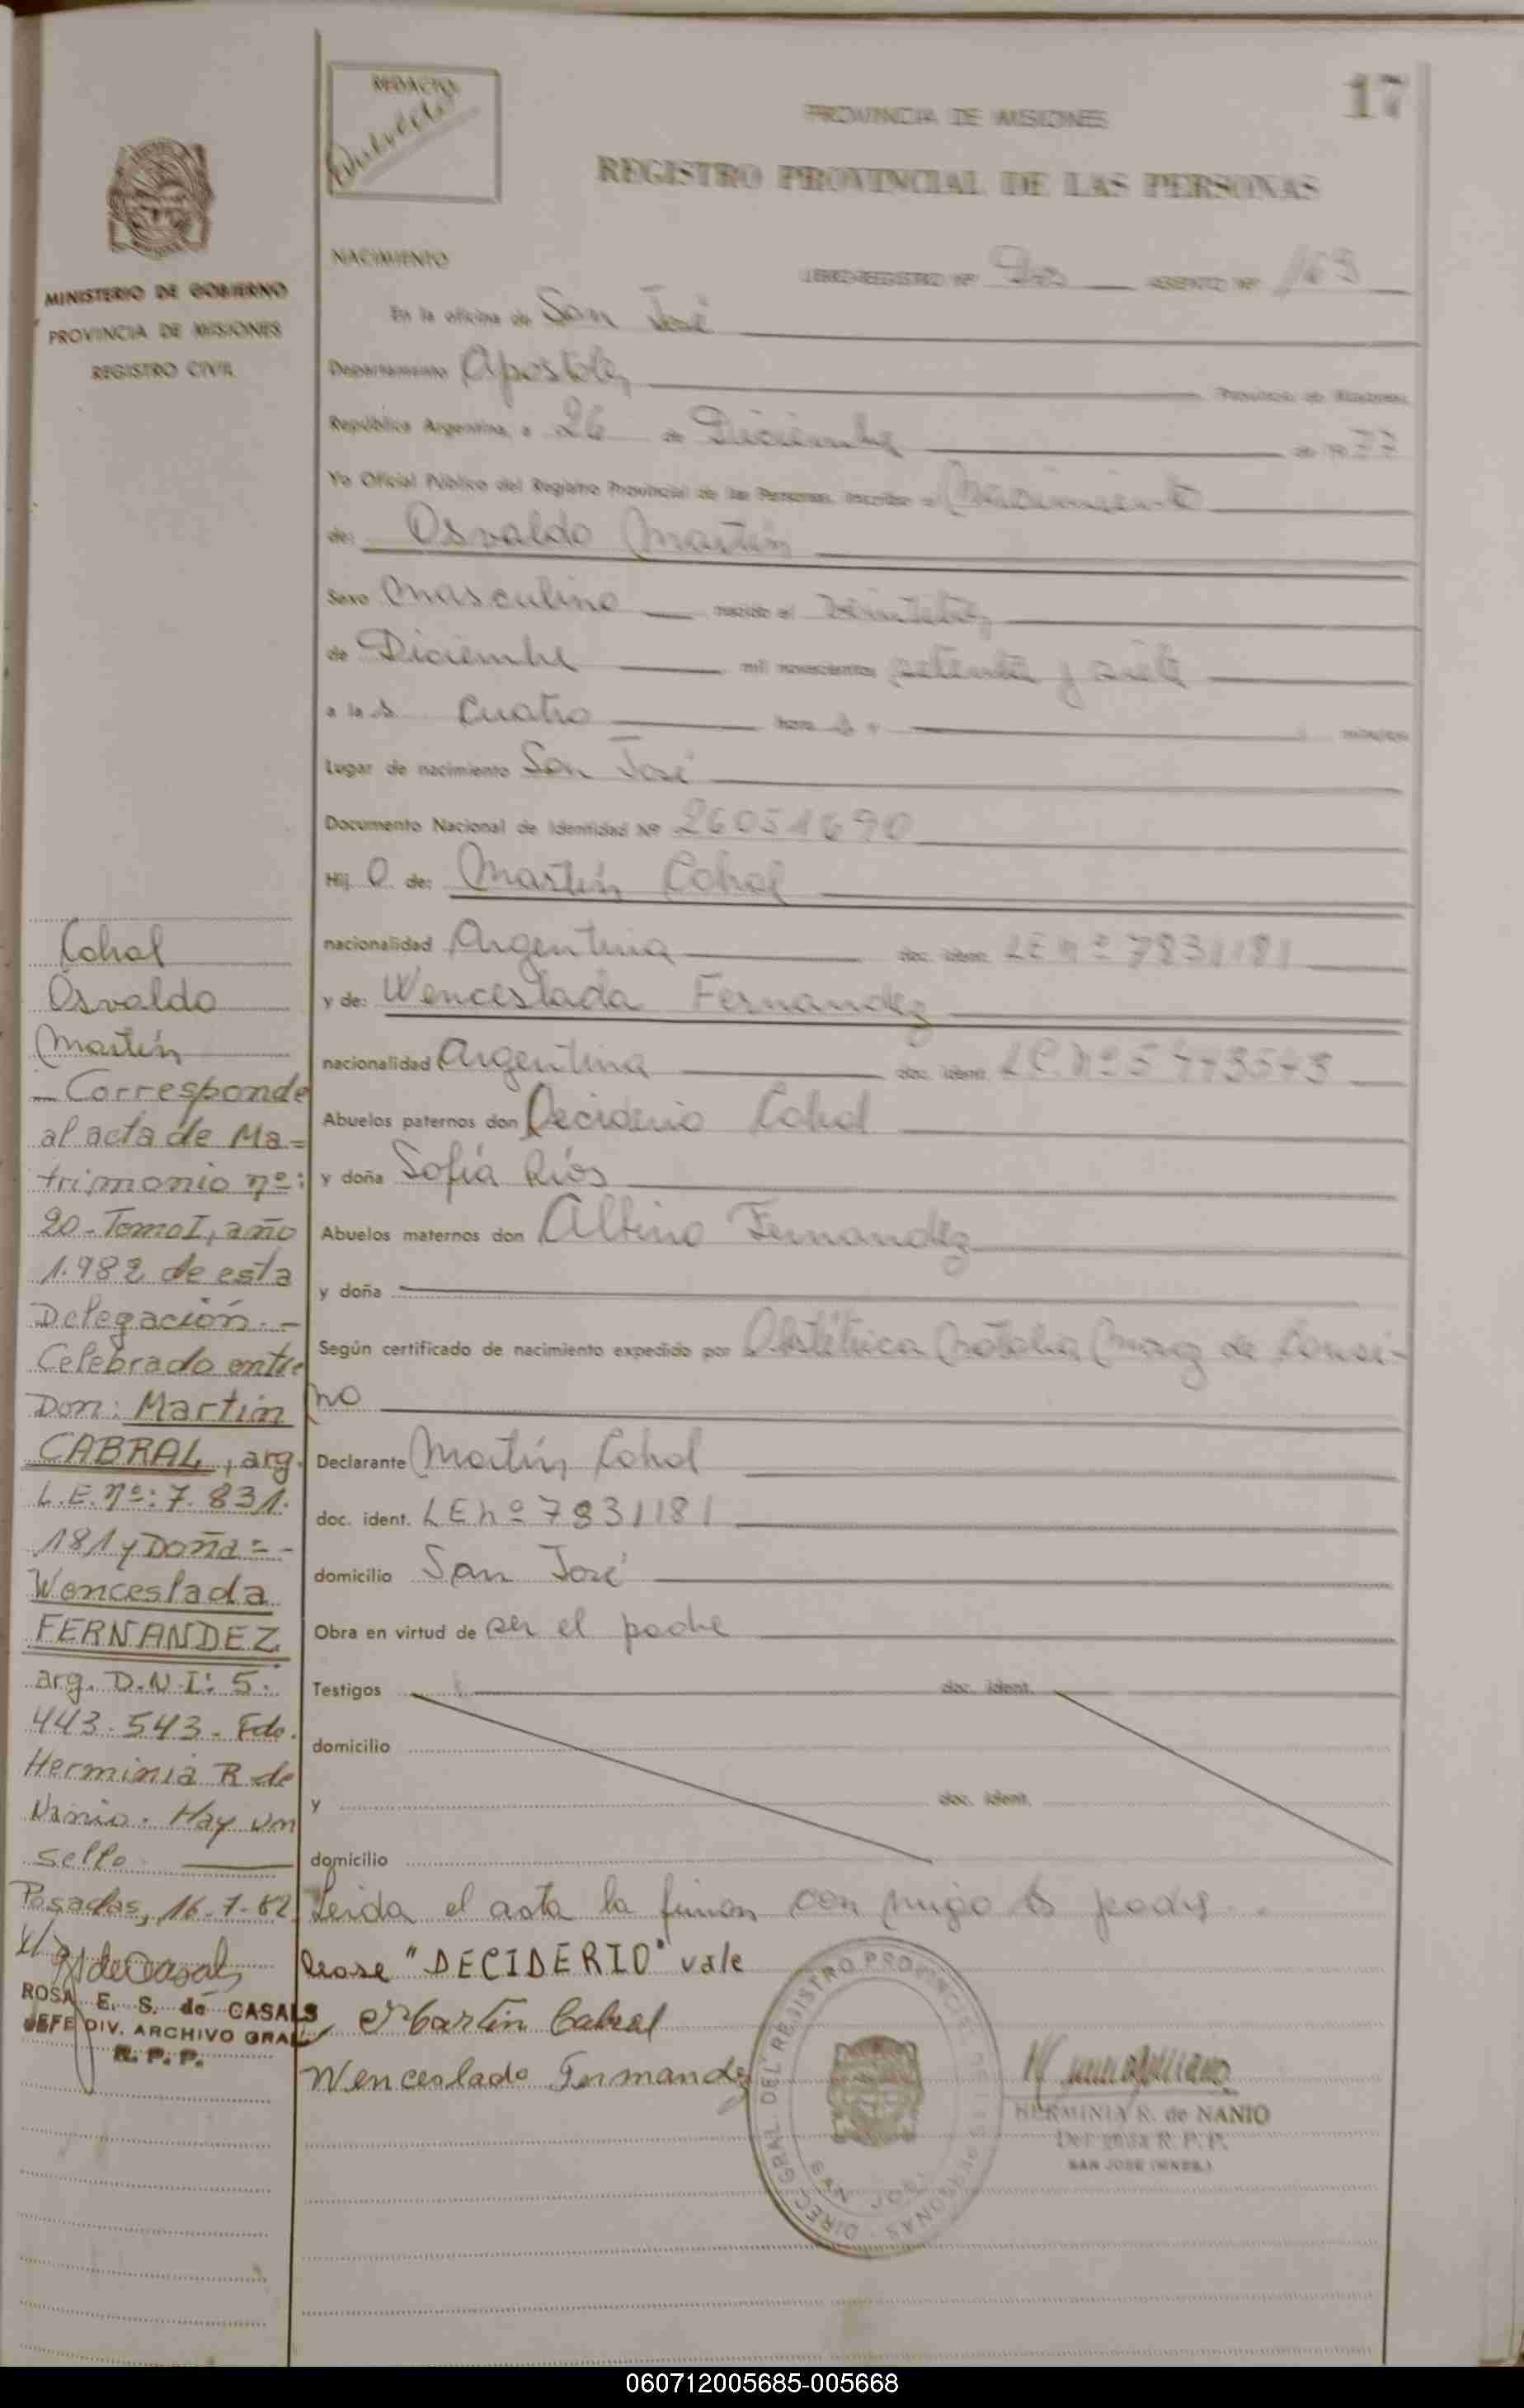 17
REDACTO
PROVINCIA DE MISIONES
REGISTRO PROVINCIAL DE LAS PERSONAS
MINISTERIO DE GOBIERNO
PROVINCIA DE MISIONES
REGISTRO CIVIL
NACIMIENTO
LIBRO-REGISTRO Nº Dos ASIENTO Nº 163
En la oficina de San José
Departamento Apostoles Provincia de Misiones
República Argentina, a 26 de Diciembre de 1977
Yo Oficial Público del Registro Provincial de las Personas, inscribo el Nacimiento
de: Osvaldo Martín
Sexo Masculino nacido el veintitrés
de Diciembre mil novecientos setenta y siete
a la s cuatro hora s y minutos
Lugar de nacimiento San José
Documento Nacional de Identidad Nº 26051690
Hij o de: Martín Cabral
nacionalidad Argentina doc. ident. LE nº 7831181
y de: Wenceslada Fernandez
nacionalidad Argentina doc. ident. LC. nº 5443543
Abuelos paternos don Deciderio Cabral
y doña Sofía Ríos
Abuelos maternos don Albino Fernandez
y doña
Según certificado de nacimiento expedido por Obstétrica de
no
Declarante Martín Cabral
doc. ident. LE nº 7831181
domicilio San José
Obra en virtud de ser el padre
Testigos doc. ident.
domicilio
y doc. ident.
domicilio
Leida el acta la firman con migo los padres
lease "DECIDERIO" vale
Martin Cabral
Wenceslada Fernandez
DIREC. GRAL. DEL REGISTRO PROVINCIAL DE LAS PERSONAS
SAN JOSE
HERMINIA R. de NANIO
Delegada R. P. P.
SAN JOSE (MNES.)
Cabral
Osvaldo
Martín
— Corresponde
al acta de Ma=
trimonio nº:
20-Tomo I, año
1.982 de esta
Delegación.-
Celebrado entre
Don: Martin
CABRAL, arg.
L.E. nº: 7.831.
181 y Doña=-
Wenceslada
FERNANDEZ
arg. D.N.I: 5.
443.543- Fdo.
Herminia R de
Nanio. Hay un
sello.
Posadas, 16-7-82
R S de Casals
ROSA E. S. de CASALS
JEFE DIV. ARCHIVO GRAL
R. P. P.
060712005685-005668